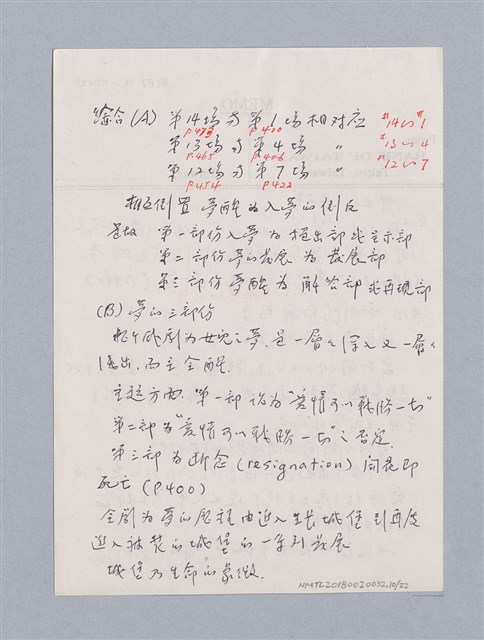 綜合(A) 第14場与第1場相対応 #14い#1
P.473 P.400
第13場与第4場 〃 #13い4
P.465 P.406
第12場与第7場 〃 #12い7
P.454 P.422
相互倒置 夢醒為入夢的倒反
是故 第一部份入夢為提出部或呈示部
第二部份夢的發展 為 發展部
第三部份夢醒為 解答部 或再現部
(B) 夢的三部份
戲劇為 之夢, 是一層々深入又一層々
浮出, 而至全醒.
主題方面 "第一部 認為 "愛情可以戰勝一切"
第二部為 "愛情可以戰勝一切" 之否定.
第三部為 断念 (resignation) 即
死亡 (P.400)
全劇為夢的歷程 由進入 城堡 到再度
進入 的城堡 的一系列發展
城堡乃生命的象徵.
NMTL20180020032.10/22